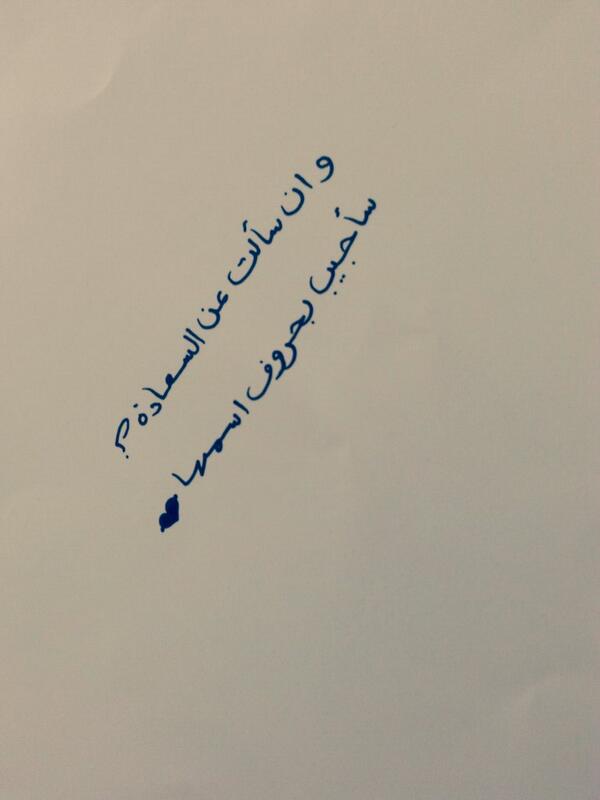 و ان سألت عن السعادة ؟
سأجيب بحروف اسمها